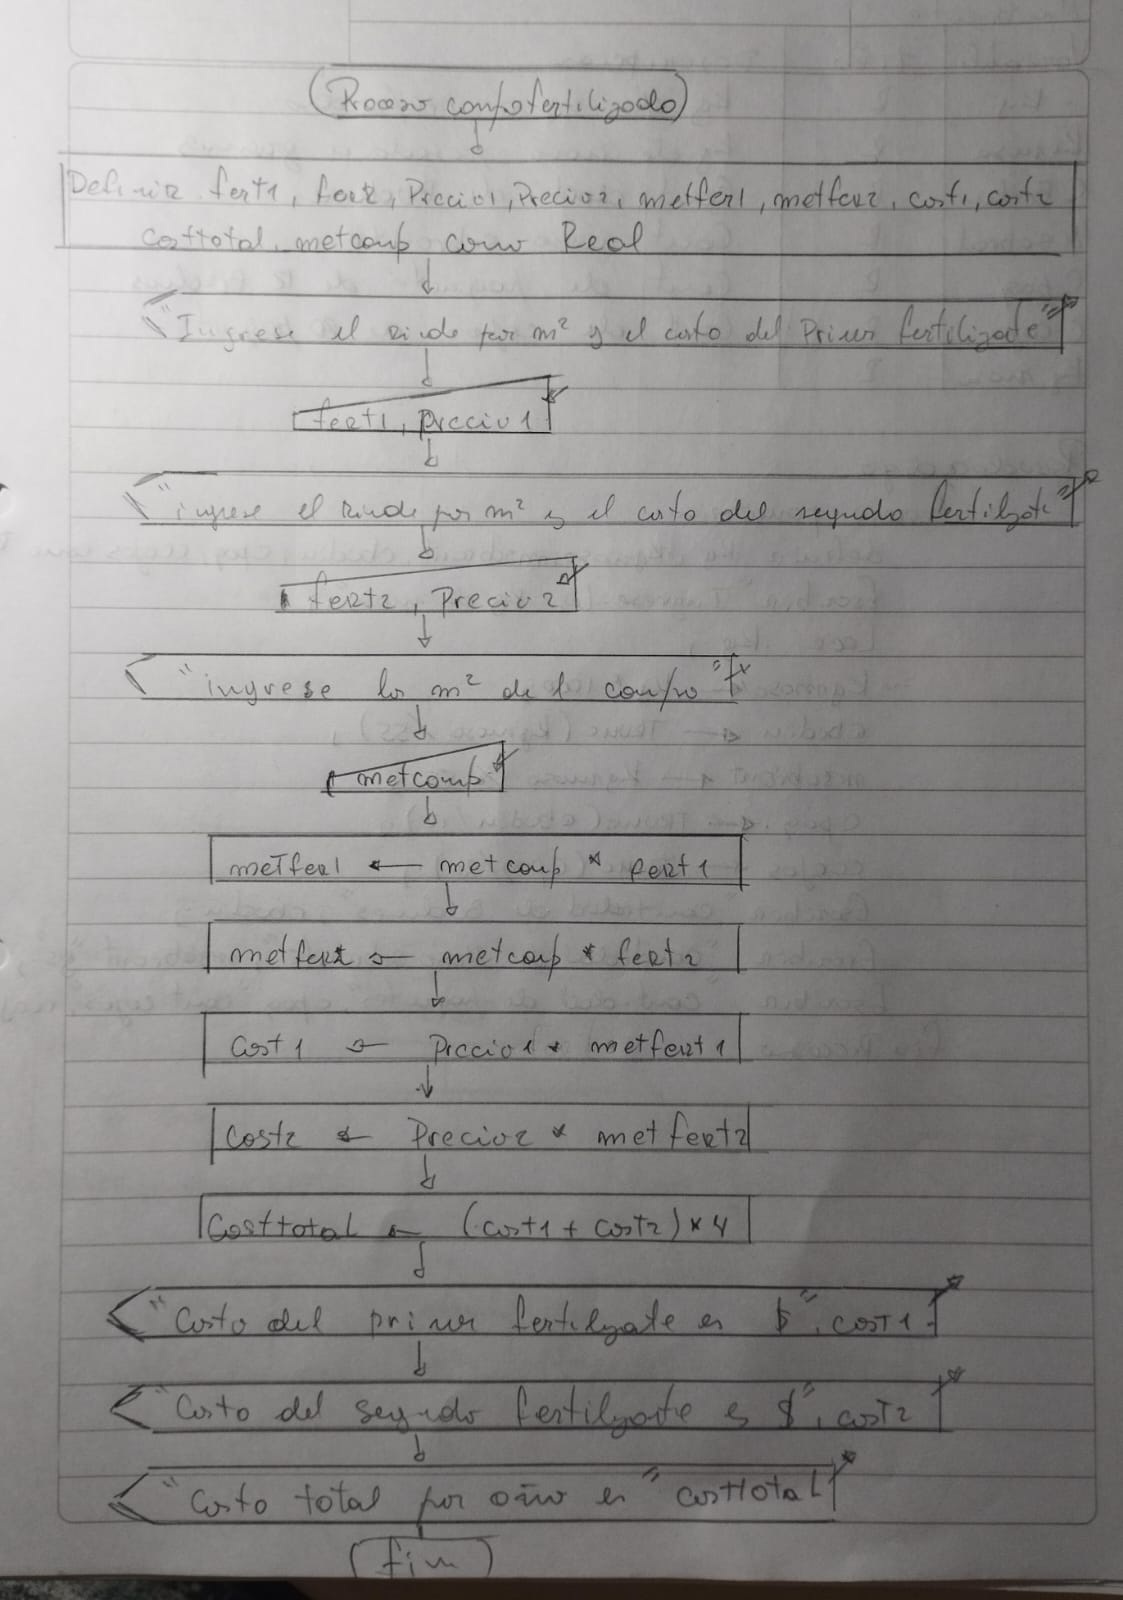 Proceso campofertilizado
Definir fert1, fert2, Precio1, Precio2, metfer1, metfer2, cost1, cost2
costtotal, metcamp como Real
"Ingrese el rinde por m² y el costo del Primer fertilizate"
fert1, precio1
"ingrese el rinde por m² y el costo del segundo fertilizate"
fert2, Precio2
"ingrese los m² de l campo"
metcamp
metfer1 ← metcamp * fert1
metfert2 ← metcamp * fert2
Cost1 ← Precio1 * metfert1
Cost2 ← Precio2 * metfert2
Costtotal ← (cost1 + cost2) * 4
"Costo del primer fertilizate es $", cost1
"Costo del segundo fertilizate es $", cost2
"Costo total por año es" costtotal
fin